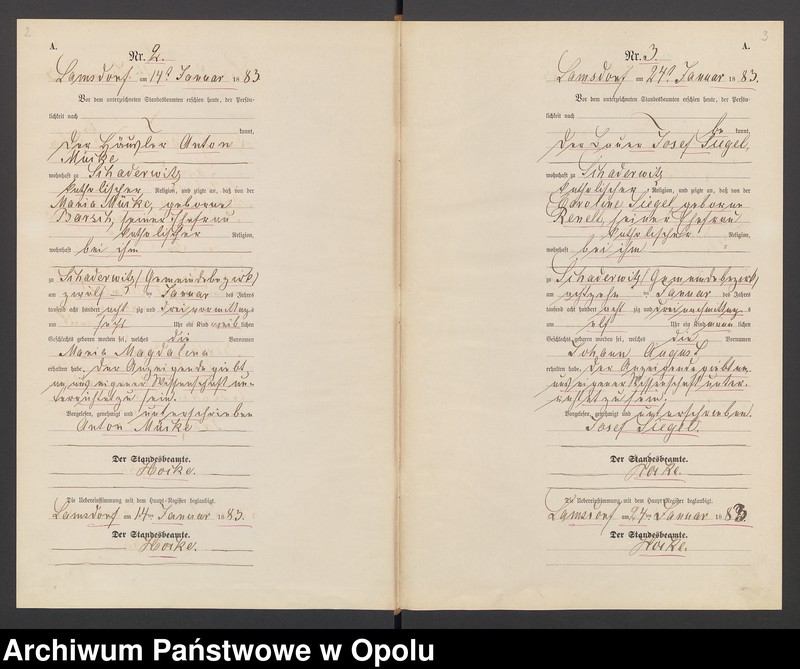 2
A.
Nr. 2.
Lamsdorf am 14ten Januar 1883
Vor dem unterzeichneten Standesbeamten erschien heute, der Persön-
lichkeit nach
kannt,
der Häusler Anton
Mücke
wohnhaft zu Schaderwitz
katholischer Religion, und zeigte an, daß von der
Maria Mücke, geborne
seiner Ehefrau
katholischer Religion,
wohnhaft bei ihm
zu Schaderwitz (Gemeindebezirk)
am zwölften Januar des Jahres
tausend acht hundert acht zig und drei vormittags
um sechs Uhr ein Kind weiblichen
Geschlechts geboren worden sei, welches die Vornamen
Maria Magdalena
erhalten habe. Der Anzeigende giebt
an, aus eigener Wissenschaft un-
terrichtet zu sein.
Vorgelesen, genehmigt und unterschrieben
Anton Mücke
Der Standesbeamte.
Die Uebereinstimmung mit dem Haupt-Register beglaubigt.
Lamsdorf am 14ten Januar 1883.
Der Standesbeamte.
3
A.
Nr. 3.
Lamsdorf am 27ten Januar 1883.
Vor dem unterzeichneten Standesbeamten erschien heute, der Persön-
lichkeit nach
be kannt,
der Bauer Josef Siegel,
wohnhaft zu Schaderwitz
katholischer Religion, und zeigte an, daß von der
Caroline Siegel geborne
seiner Ehefrau
katholischer Religion,
wohnhaft bei ihm
zu Schaderwitz (Gemeindebezirk)
am achtzehn ten Januar des Jahres
tausend acht hundert acht zig und drei nachmittags
um elf Uhr ein Kind männlichen
Geschlechts geboren worden sei, welches die Vornamen
Johann August
erhalten habe. Der Anzeigende giebt an,
aus eigener Wissenschaft unter-
richtet zu sein.
Vorgelesen, genehmigt und unterschrieben.
Josef Siegel.
Der Standesbeamte.
Die Uebereinstimmung mit dem Haupt-Register beglaubigt.
Lamsdorf am 27ten Januar 1883.
Der Standesbeamte.
Archiwum Państwowe w Opolu